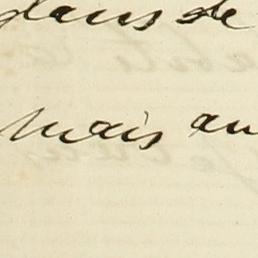 dans de
Mais au